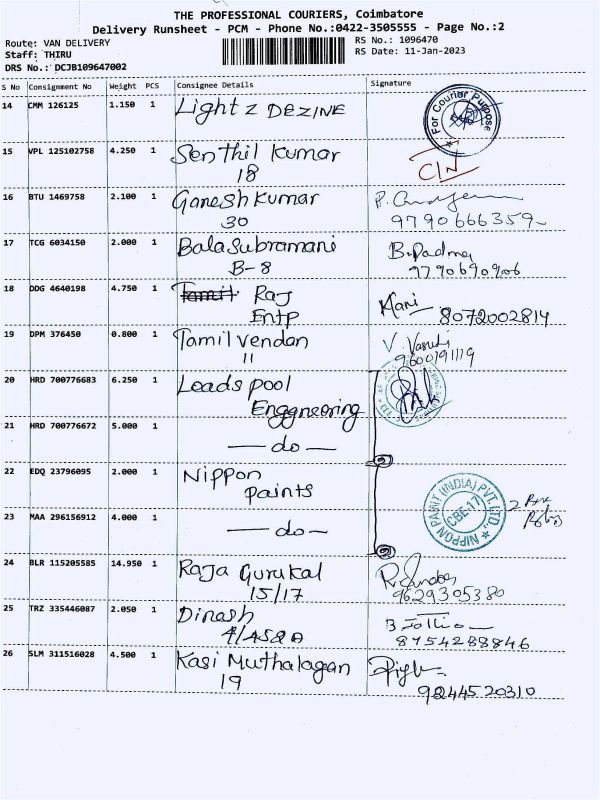 THE PROFESSIONAL COURIERS, Coimbatore
Delivery Runsheet - PCM - Phone No.:0422-3505555 - Page No.:2
Route: VAN DELIVERY
RS No.: 1096470
Staff: THIRU
RS Date: 11-Jan-2023
DRS No.: DCJB109647002
S No Consignment No Weight PCS Consignee Details Signature
14 CMM 126125 1.150 1 Lightz DEZINE
For Courier Purpose
15 VPL 125102758 4.250 1 Senthil Kumar
18
C/N
16 BTU 1469758 2.100 1 Ganesh Kumar
30
9790666359
17 TCG 6034150 2.000 1 BalaSubramani B.Padma
B-8 9790690906
18 DDG 4640198 4.750 1 Tamil Raj Mani
Entp 8072002814
19 DPM 376450 0.800 1 Tamilvendan V. Vasuki
11 9600191119
20 HRD 700776683 6.250 1 Leads pool
Enggneering
21 HRD 700776672 5.000 1
— do —
22 EDQ 23796095 2.000 1 Nippon
paints
NIPPON PAINT (INDIA) PVT. LTD.,
CBE-17
23 MAA 296156912 4.000 1
— do —
24 BLR 115205585 14.950 1 Raja Gurukal
15/17 9629305380
25 TRZ 335446087 2.050 1 Dinash
4/458A 8754288846
26 SLM 311516028 4.500 1 Kasi Muthalagan
19 9244520310